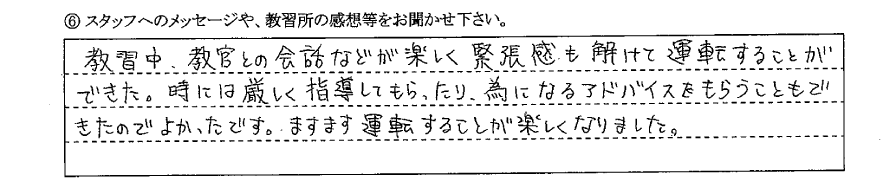 ⑥ スタッフへのメッセージや、教習所の感想等をお聞かせ下さい。
教習中、教官との会話などが楽しく緊張感も解けて運転することが
できた。時には厳しく指導してもらったり、為になるアドバイスをもらうこともで
きたのでよかったです。ますます運転することが楽しくなりました。